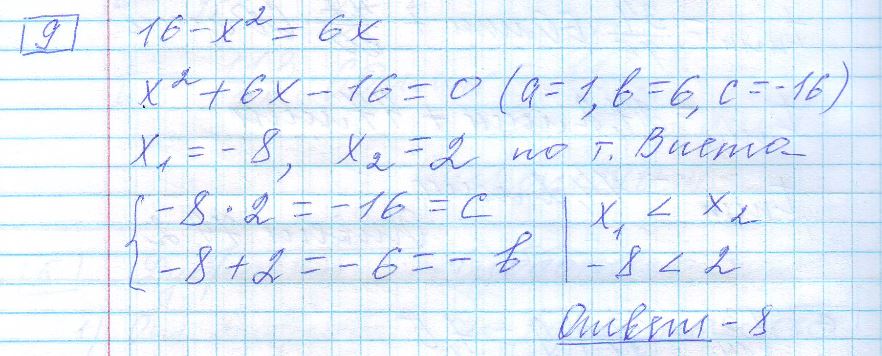 9 16-x²=6x
x²+6x-16=0 (a=1, b=6, c=-16)
x₁=-8, x₂=2 по т. Виета
{ -8·2=-16=c | x₁ < x₂
-8+2=-6=-b | -8 < 2
Ответ -8